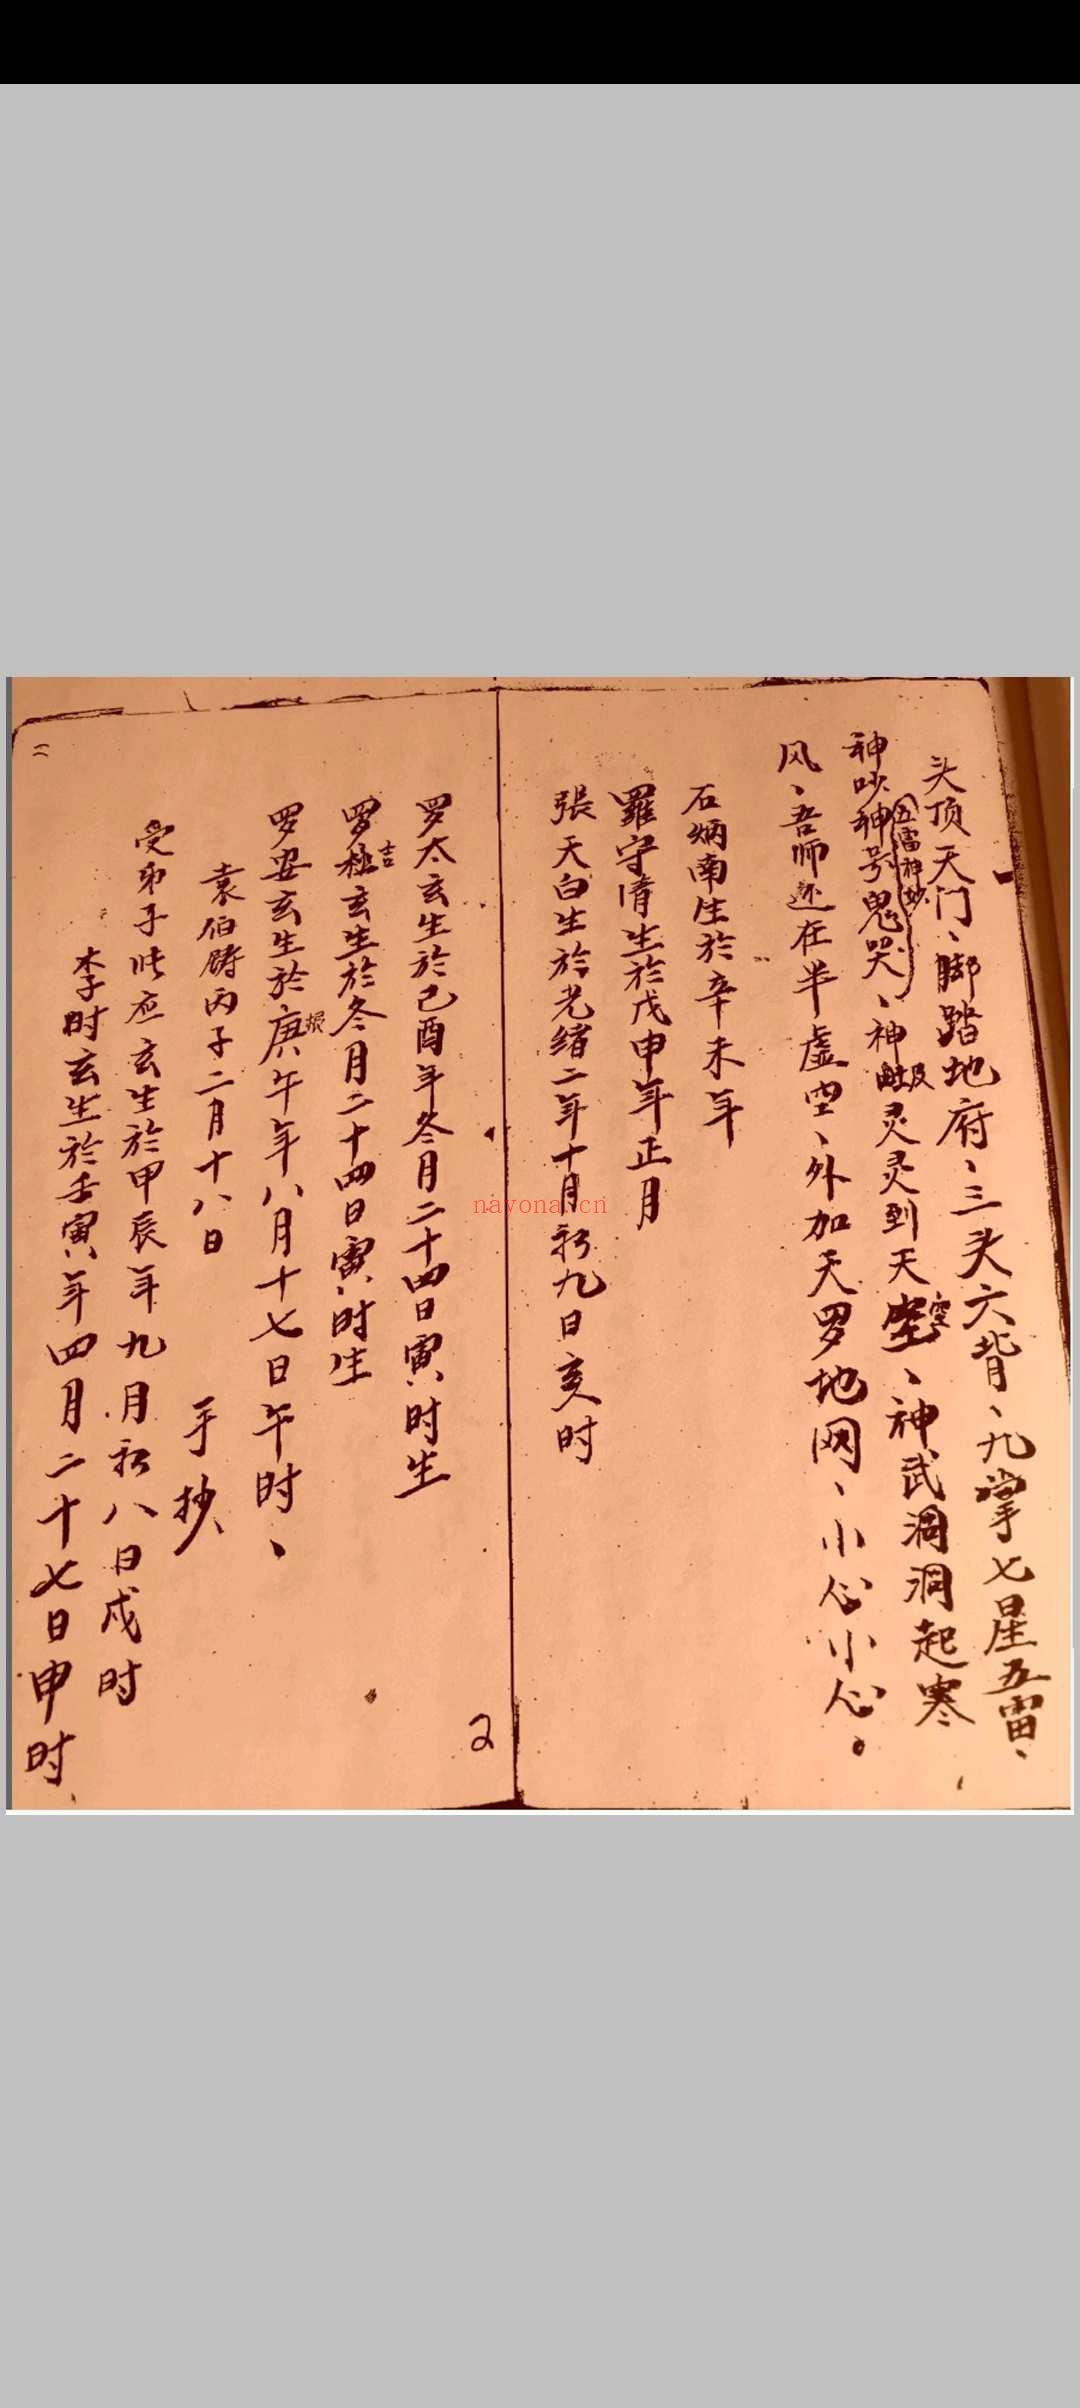 头顶天门、脚踏地府、三头六背、九掌七星五雷、
五雷神妙
神吵神号鬼哭、神及灵灵到天空、神武洞洞起寒
风、吾师还在半虚空、外加天罗地网、小心小心。
石炳南生於辛未年
羅守清生於戊申年正月
張天白生於光緒二年十月初九日亥时
罗太玄生於己酉年冬月二十四日寅时生
罗吉玄生於冬月二十四日寅时生
罗安玄生於庚午年八月十七日午时、
袁伯铸丙子二月十八日 手抄
受弟子 玄生於甲辰年九月初八日戌时
李时玄生於壬寅年四月二十七日申时
二
2
nayona.cn